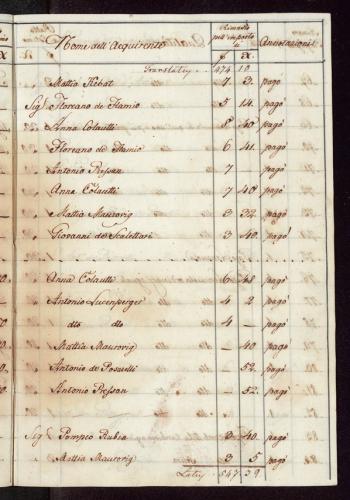 Nome dell'Acquirente Rimasto per l'importo di Annotazioni
f x.
Translatey . . 474 10.
Mattia Hebat 7 3. pagò
Sigʳ Floreano de Flamio 5 14. pagò
Anna Colautti 8 40 pagò
Floreano de Flamio 6 41. pagò
Antonio Pressan 7 pagò
Anna Colautti 7 40. pagò
Mattia Maurovig 3 32. pagò
Giovanni de Scalettari 3 40. pagò
Anna Colautti 6 48 pagò
Antonio Luxenperger 4 2 pagò
dto dto 4 — pagò
Mattia Maurovig — 40. pagò
Antonio de — 52. pagò
Antonio Pressan — 52. pagò
Sigʳ Pompeo Rubia 3 40. pagò
Mattia Maurovig 3 5 pagò
Latey 547. 39.